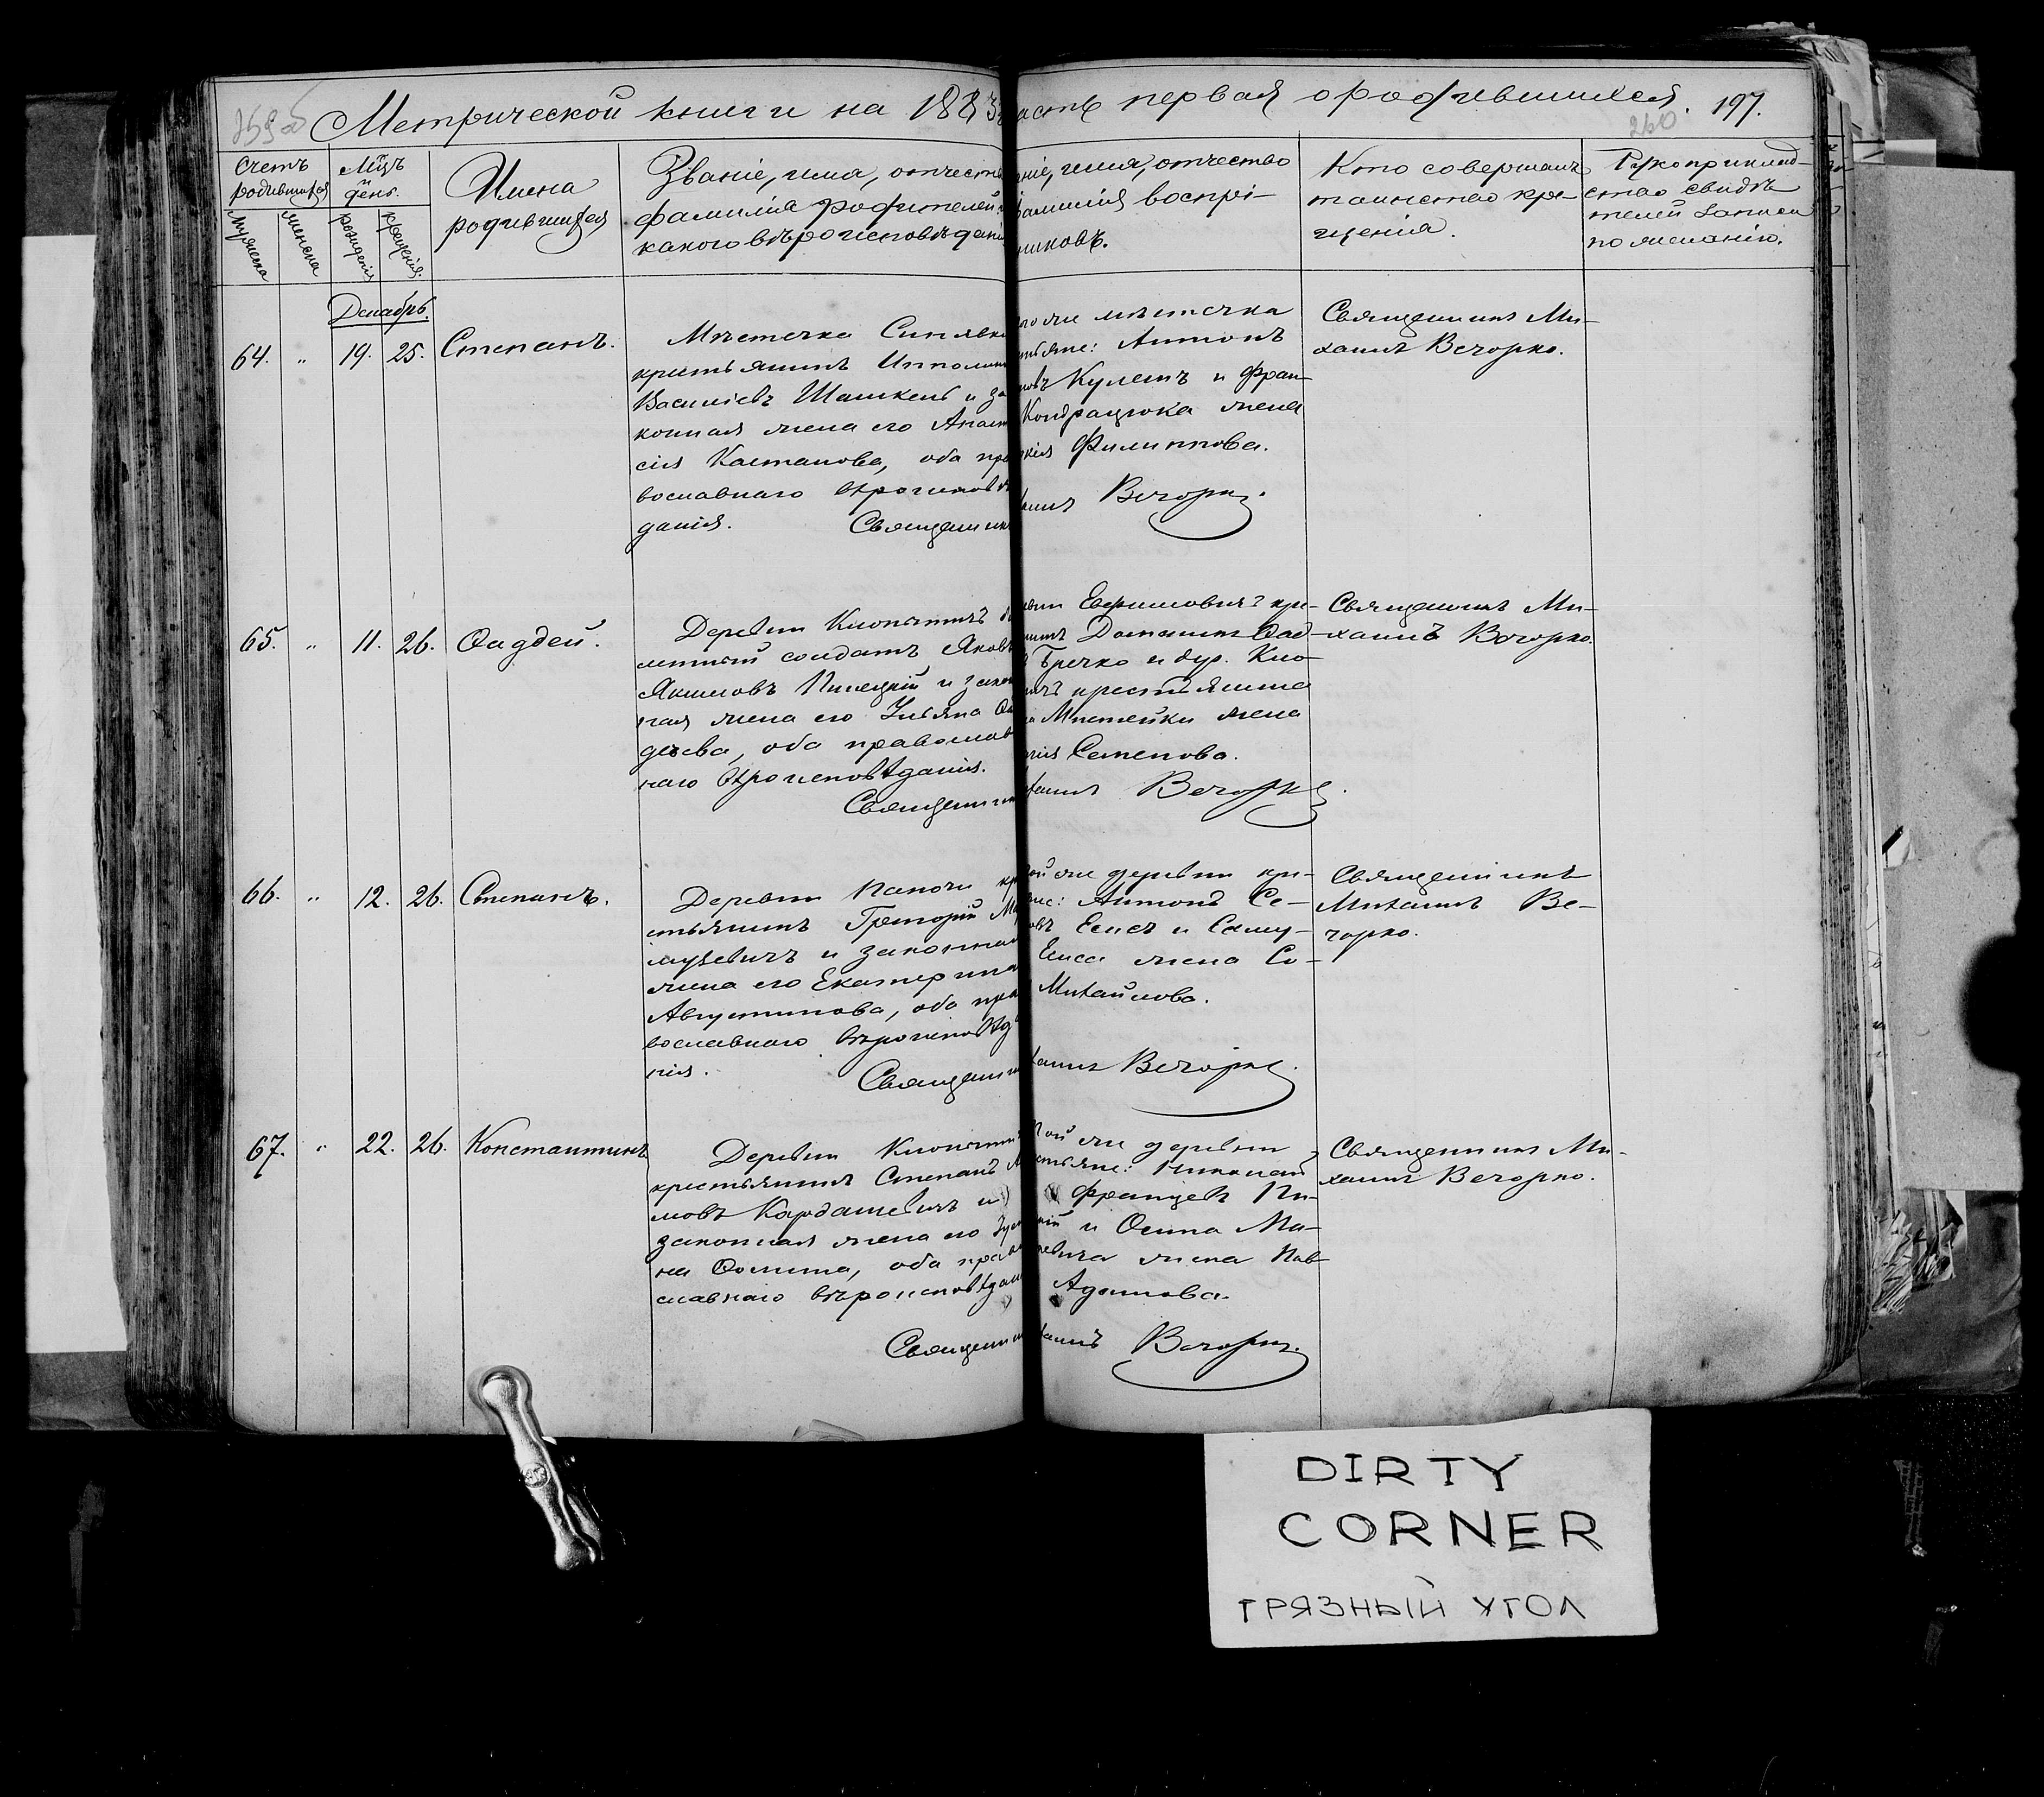 Метрической книги на 1883
асть первая о родившихся. 197.
260
Счетъ родившихся
Мѣцъ и день.
Имена родившихся
Званіе, имя, отчест
фамилія родителей
какого вѣроисповѣдані
ніе, имя, отчество
фамилія воспрі-
мниковъ.
Кто совершалъ
таинство кре-
щенія.
Рукоприклад-
ство свидѣ-
телей записи
по желанію.
Мужеска
Женска
рожденія
крещенія.
Декабрь.
64. " 19. 25. Степанъ.
Мѣстечка Синявки
крестьянинъ Ипполит
Василіевъ Шашкень и за
конная жена его Анаста
сія Кастанова, оба пра
вославнаго вѣроисповѣ
данія. Священник
го же мѣстечка
тьяне: Антонъ
новъ Кулешъ и Фран-
Кондрацюка жена
кія Филиппова.
хаилъ Вечорко.
Священникъ Ми-
хаилъ Вечорко.
65. " 11. 26. Ѳаддей.
Деревни Кнопичинъ
солдатъ Яковъ
Якимовъ Пилецкій и закон
ная жена его Ульяна Ѳа
деева, оба православ
наго вѣроисповѣданія.
Священник
Ефимовичъ кре-
нинъ Ѳад-
Гречко и дер. Кно-
крестьянина
жена
Семенова.
хаилъ Вечорко.
Священникъ Ми-
хаилъ Вечорко.
66. " 12. 26. Степанъ.
Деревни Паночи кр
стьянинъ Григорій Ма
цулевичъ и законная
жена его Екатерина
Августинова, оба пра
вославнаго вѣроисповѣд
нія. Священни
ой же деревни кре-
не: Антонъ Се-
овъ Елисъ и Саму-
Елиса жена Со-
Михайлова.
хаилъ Вечорко.
Священникъ
Михаилъ Ве-
чорко.
67. " 22. 26. Константинъ
Деревни Кнопичин
крестьянинъ Степанъ А
мовъ Кардашевичъ и
законная жена его Іус
на Ѳомина, оба право
славнаго вѣроисповѣдан
Священни
той же деревни
стьяне: Николай
Францевъ Пи-
кій и Осипа Ма-
евича жена Пав
Адамова.
хаилъ Вечорко.
Священникъ Ми-
хаилъ Вечорко.
DIRTY
CORNER
ГРЯЗНЫЙ УГОЛ